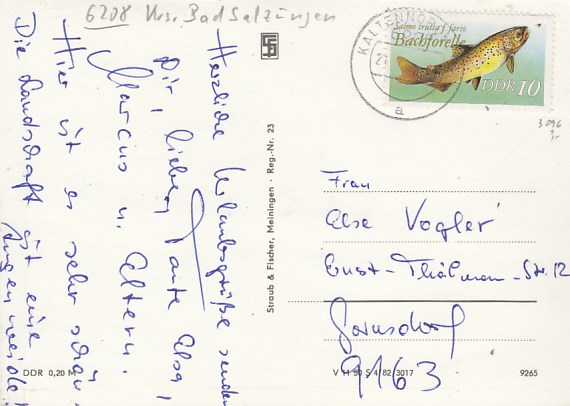 6208 Krs. Bad Salzungen
Herzliche Urlaubsgrüße senden
Dir, liebe Tante Elsa,
Marcus u. Eltern.
Hier ist es sehr schön
Die Landschaft ist eine
Augenweide
Straub & Fischer, Meiningen · Reg.-Nr. 23
DDR 0,20 M
KALTENNOR
21
a
Salmo trutta f. fario
Bachforelle
DDR 10
3096
Frau
Else Vogler
Ernst-Thälmann-Str. 12
Gornsdorf
9163
V 11 50 S 4/82 3017
9265